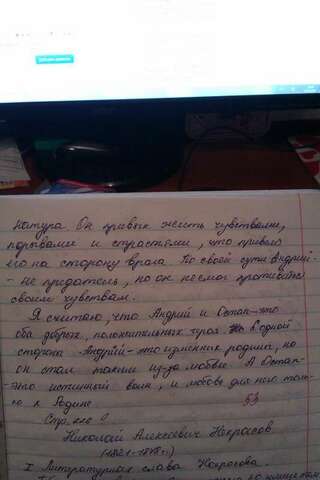 натура. Он привык жить чувствами,
порывами и страстями, что привело
его на сторону врага. По своей сути Андрий-
- не предатель, но он не смог противится
своим чувствам.
Я считаю, что Андрий и Остап-это
оба добрых, положительных героя. В одной
стороны Андрий-это изменник родины, но
он стал таким из-за любви. А Остап-
это истинный воин, и любовь для него толь-
ко к Родине.
Николай Алексеевич Некрасов
(1821-1878гг.)
I Литературная слава Некрасова.